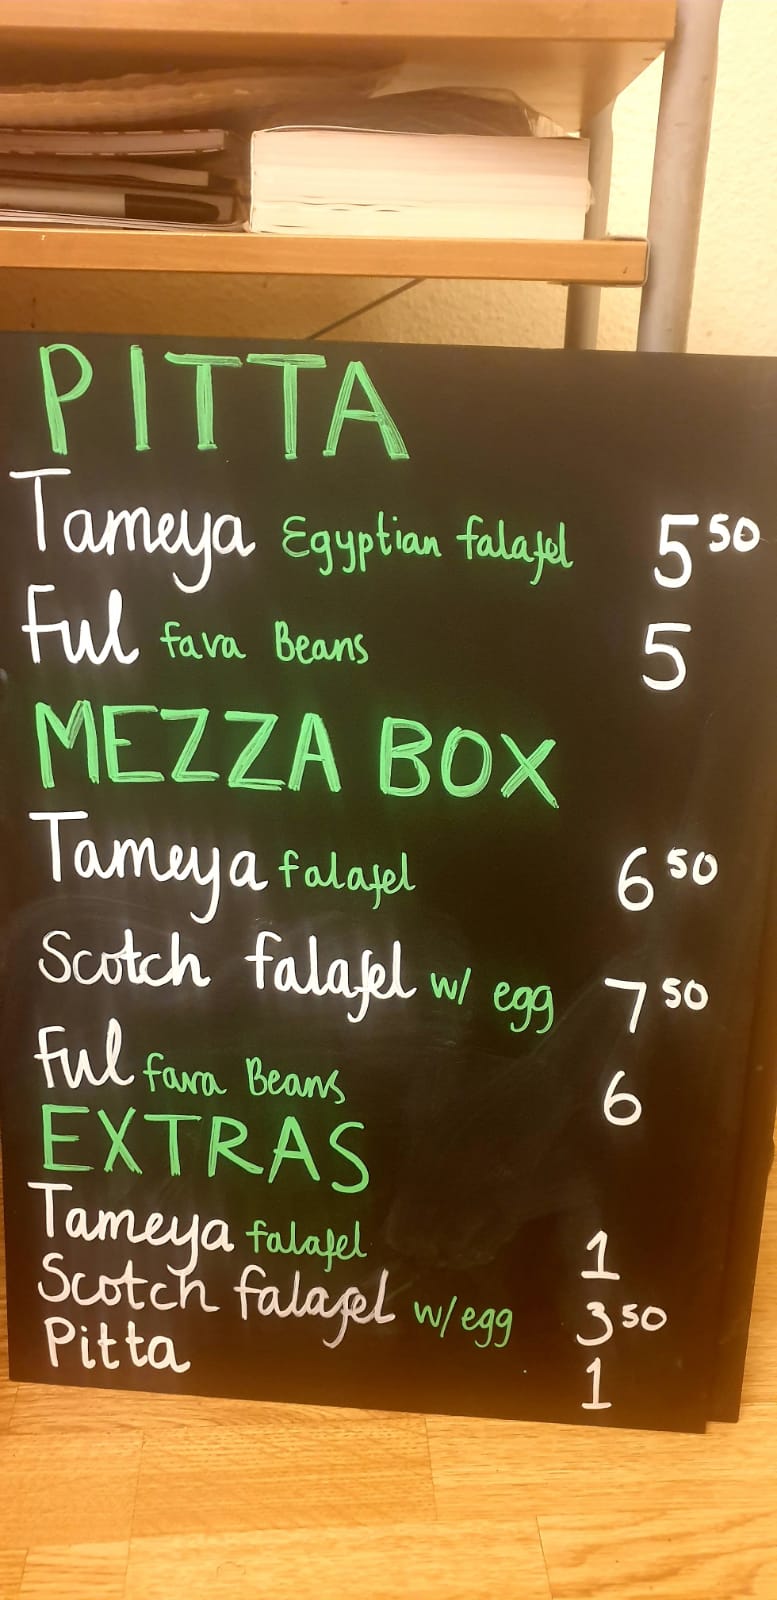 PITTA
Tameya Egyptian falafel 5 50
Ful fava Beans 5
MEZZA BOX
Tameya falafel 6 50
Scotch falafel w/ egg 7 50
Ful fava Beans 6
EXTRAS
Tameya falafel 1
Scotch falafel w/egg 3 50
Pitta 1